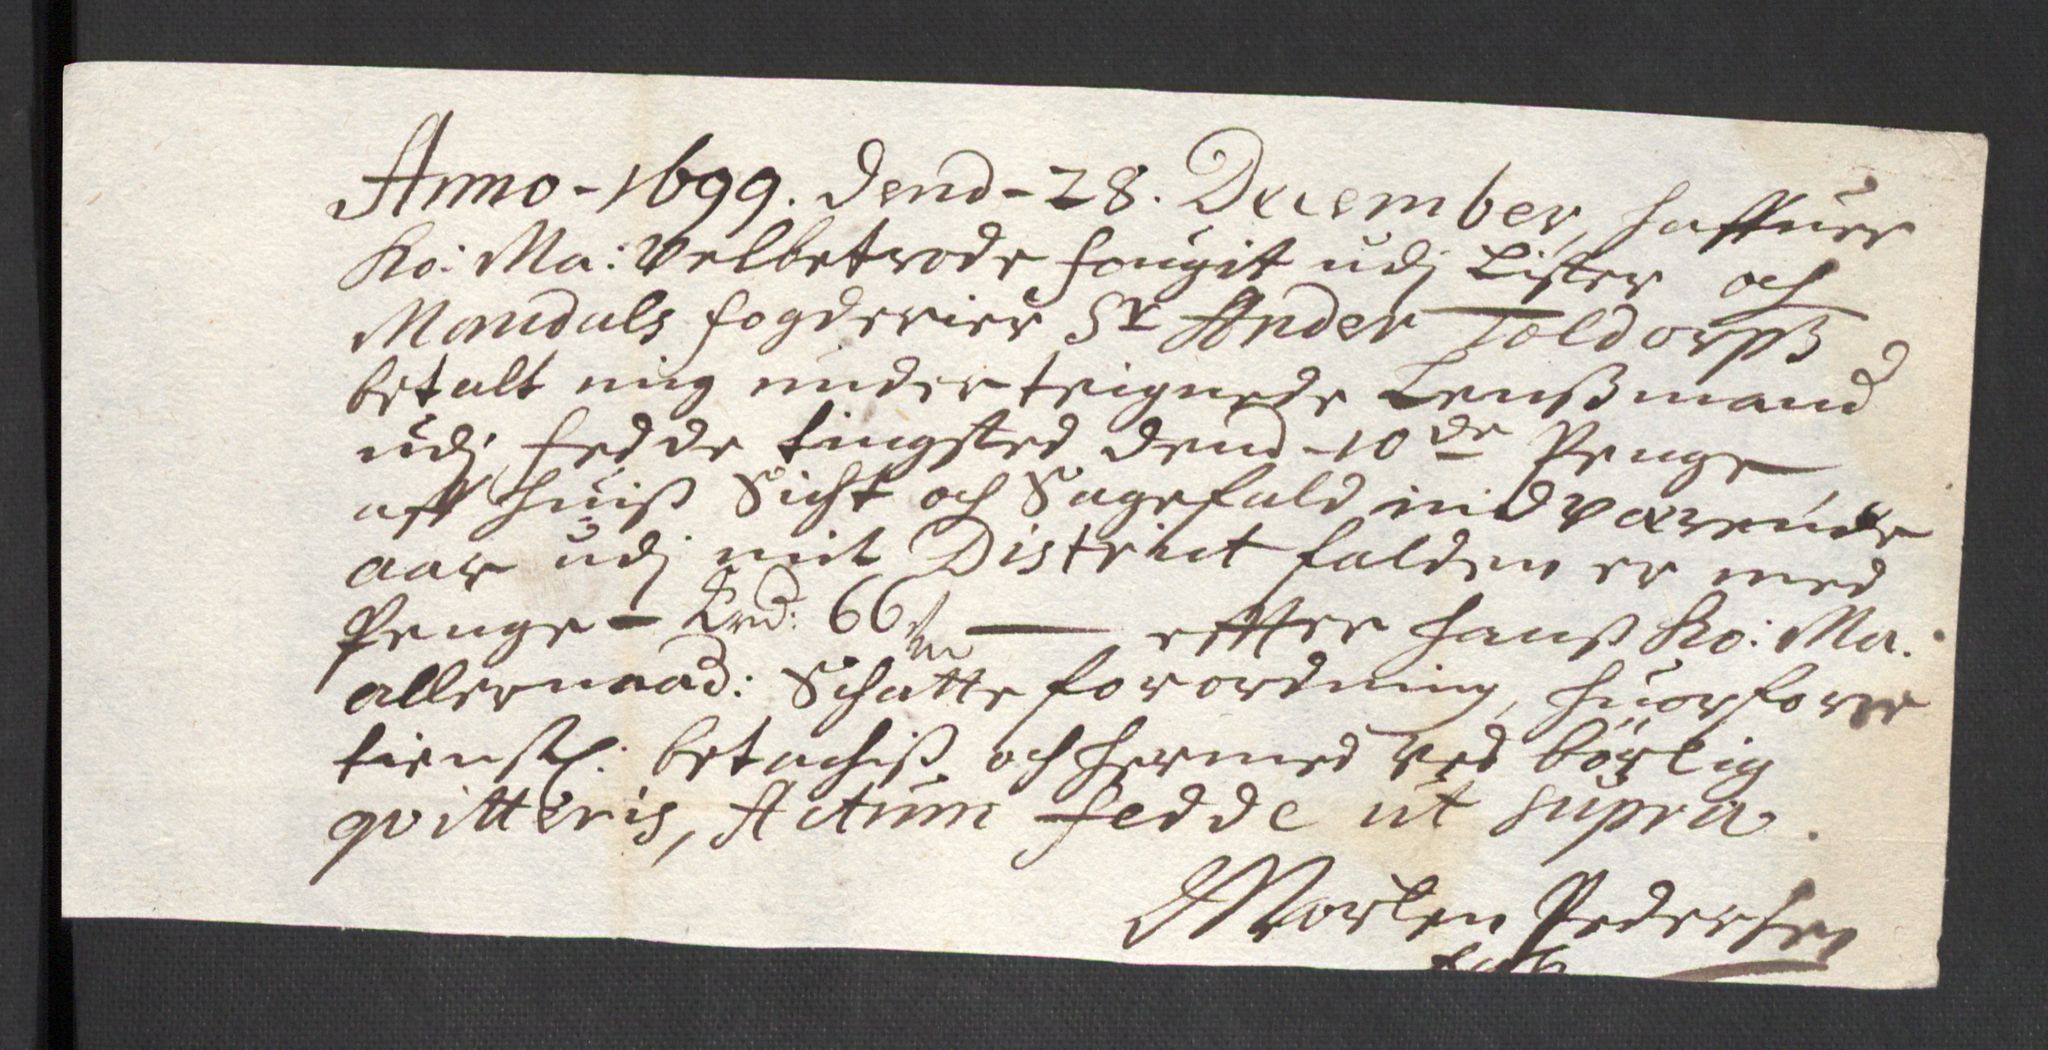 Anno - 1699. dend - 28. December, haffuer
Ko: Ma: velbetrode fougit udj Lister och
Mandals fogderier Sr Ander Toldorpß
betalt mig underteignede Lenßmand
udj Fedde tingsted dend 10de Penge
aff huiß Sicht och Sagefald indverende
aar udj mit District falden er med
Penge - 66 — efter Hanß Ko: Ma:
allernaad: Schatte forordning, huorfore
tienstl: betachiß och hermed ved börlig
qvitteris, Actum Fedde ut supra.
Morten Pedersen